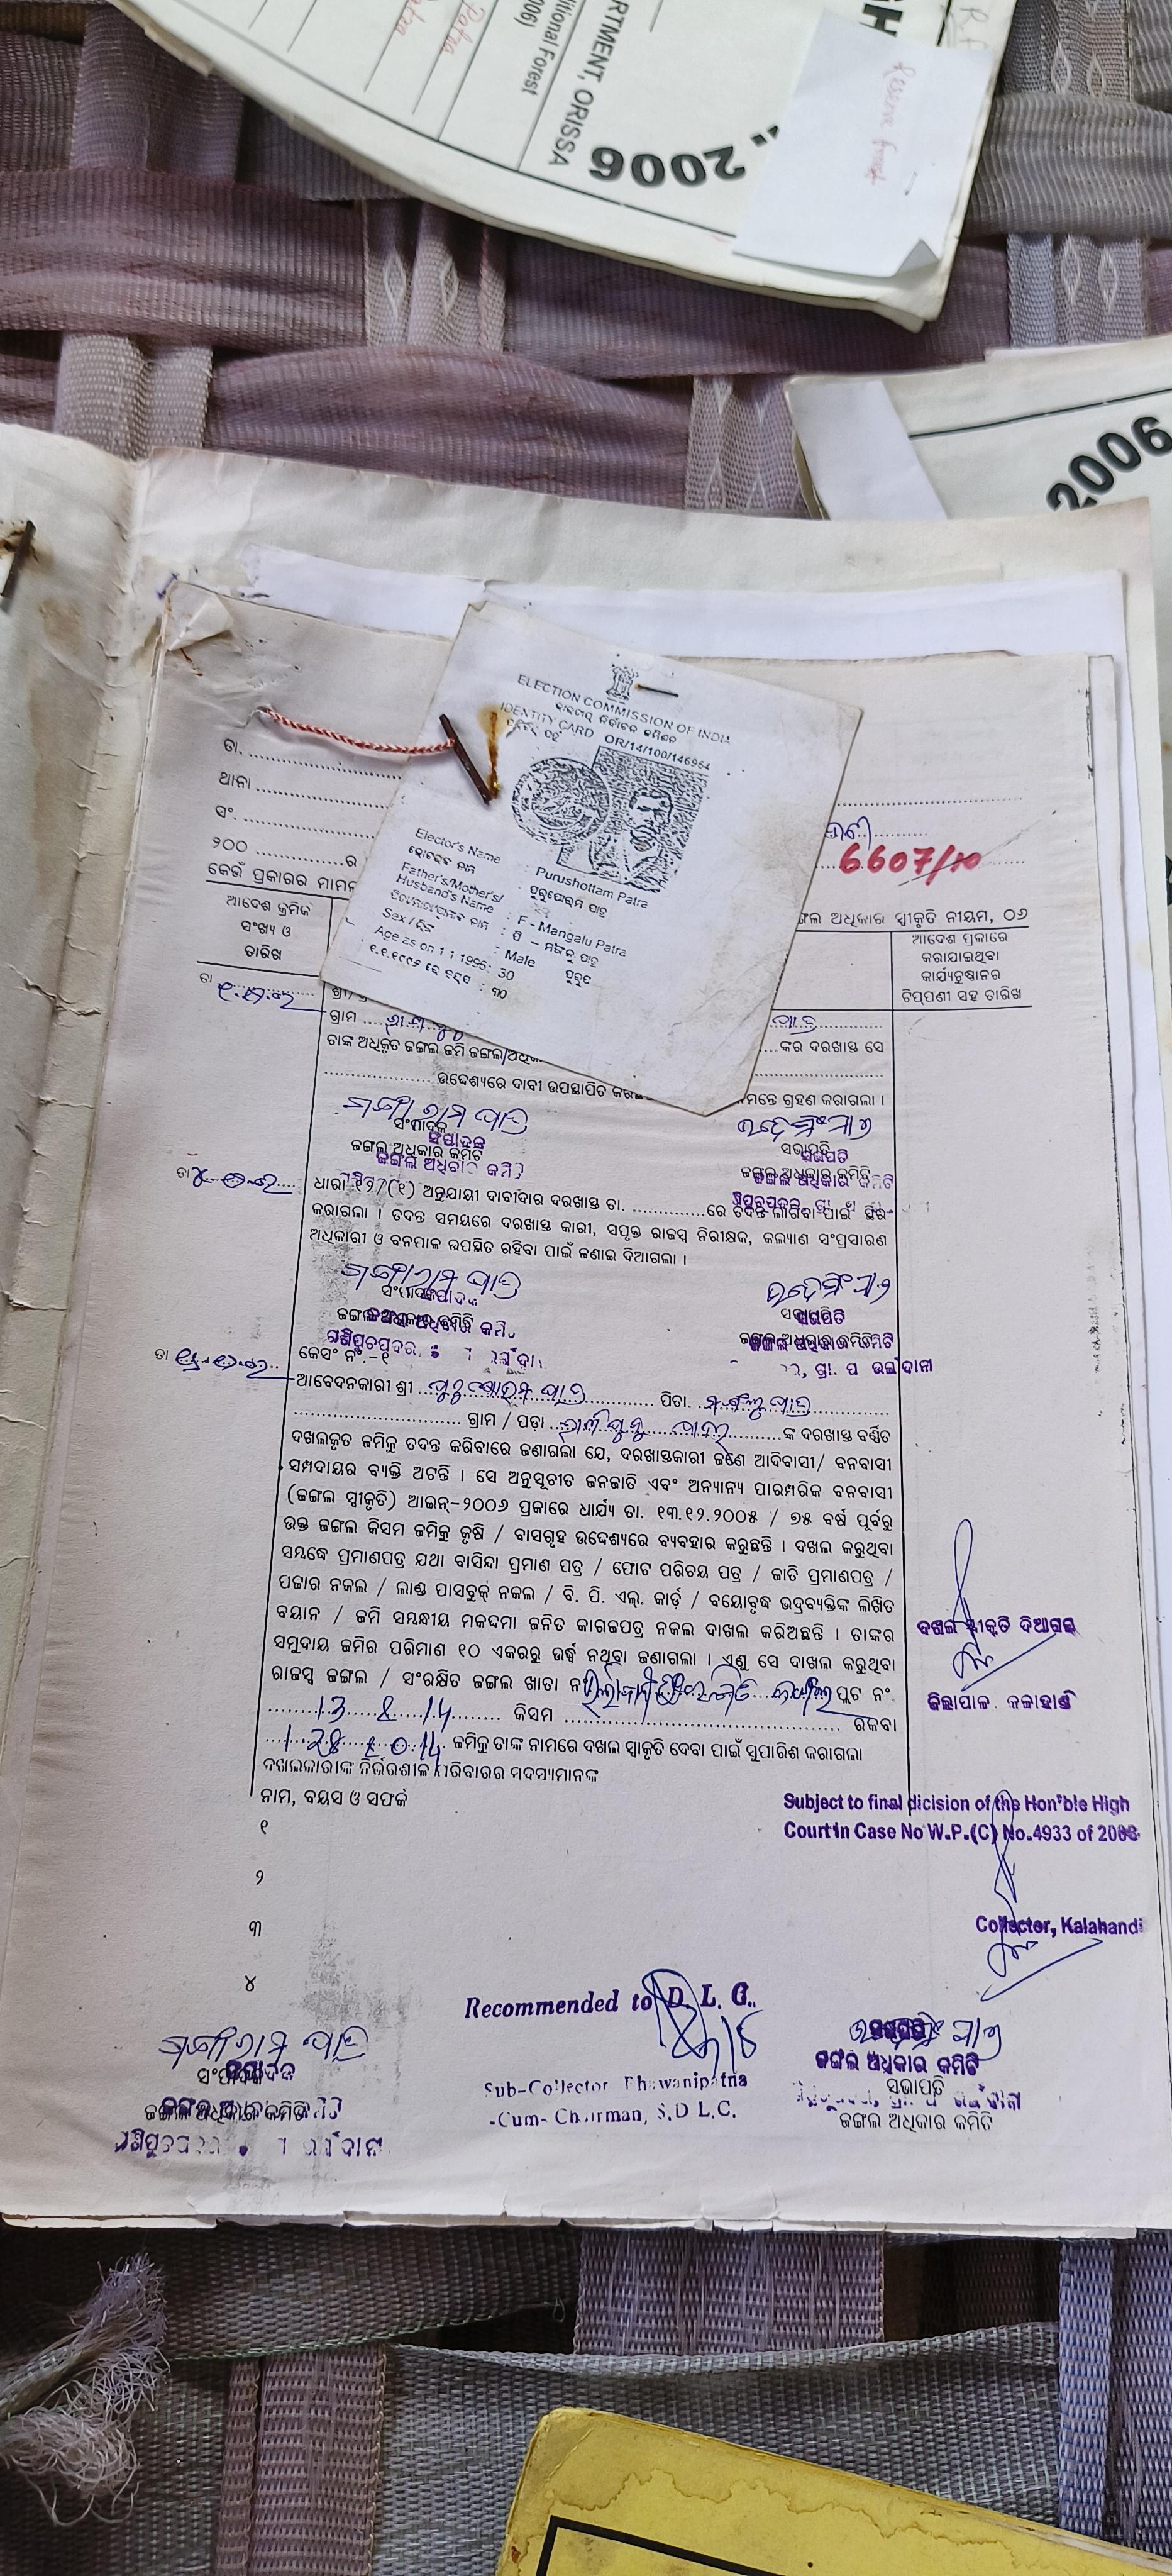 Patra
Patra
006)
ditional Forest
RTMENT, ORISSA
2006
Reserve forest
2006
ELECTION COMMISSION OF INDIA
ଭାରତର ନିର୍ବାଚନ କମିଶନ
IDENTITY CARD OR/14/100/146964
Elector's Name : Purushottam Patra
Father's/Mother's/
Husband's Name : F - Mangalu Patra
Sex / ଲିଙ୍ଗ : Male ପୁରୁଷ
Age as on 1.1.1996 : 30
୧.୧.୧୯୯୬ ରେ ବୟସ : ୩୦
ତା.
ଥାନା
ସଂ.
୨୦୦ ର
6607/10
କେଉଁ ପ୍ରକାରର ମାମଲା
ଙ୍ଗଲ ଅଧିକାର ସ୍ୱୀକୃତି ନିୟମ, ୦୬
ଆଦେଶ କ୍ରମିକ
ସଂଖ୍ୟ ଓ
ତାରିଖ
ଆଦେଶ ପ୍ରକାରେ
କରାଯାଇଥିବା
କାର୍ଯ୍ୟାନୁଷ୍ଠାନର
ଟିପ୍ପଣୀ ସହ ତାରିଖ
ତା
ଗ୍ରାମ
ପାତ୍ର
ତାଙ୍କ ଅଧିକୃତ ଜଙ୍ଗଲ ଜମି ଜଙ୍ଗଲ ଙ୍କର ଦରଖାସ୍ତ ସେ
ଉଦ୍ଦେଶ୍ୟରେ ଦାବୀ ଉପସ୍ଥାପିତ ମନ୍ତେ ଗ୍ରହଣ କରାଗଲା ।
ସଂପାଦକ
ଜଙ୍ଗଲ ଅଧିକାର କମିଟି
ସଭାପତି
ଜଙ୍ଗଲ ଅଧିକାର କମିଟି
ତା
ଧାରା ୧୨/(୧) ଅନୁଯାୟୀ ଦାବୀଦାର ଦରଖାସ୍ତ ତା. ରେ ତଦନ୍ତ ଲାଗିବା ପାଇଁ ସ୍ଥିର
କରାଗଲା । ତଦନ୍ତ ସମୟରେ ଦରଖାସ୍ତ କାରୀ, ସପୃକ୍ତ ରାଜସ୍ୱ ନିରୀକ୍ଷକ, କଲ୍ୟାଣ ସଂପ୍ରସାରଣ
ଅଧିକାରୀ ଓ ବନପାଳ ଉପସ୍ଥିତ ରହିବା ପାଇଁ ଜଣାଇ ଦିଆଗଲା ।
ସଂପାଦକ
ଜଙ୍ଗଲ ଅଧିକାର କମିଟି
ସଭାପତି
ଜଙ୍ଗଲ ଅଧିକାର କମିଟି
ତା
କେସ୍ ନଂ.-୧
ଆବେଦନକାରୀ ଶ୍ରୀ ପୁରୁଷୋତମ ପାତ୍ର ପିତା. ମଙ୍ଗଲୁ ପାତ୍ର
ଗ୍ରାମ / ପଡ଼ା ଙ୍କ ଦରଖାସ୍ତ ବର୍ଣ୍ଣିତ
ଦଖଲକୃତ ଜମିକୁ ତଦନ୍ତ କରିବାରେ ଜଣାଗଲା ଯେ, ଦରଖାସ୍ତକାରୀ ଜଣେ ଆଦିବାସୀ/ ବନବାସୀ
ସମ୍ପ୍ରଦାୟର ବ୍ୟକ୍ତି ଅଟନ୍ତି । ସେ ଅନୁସୂଚୀତ ଜନଜାତି ଏବଂ ଅନ୍ୟାନ୍ୟ ପାରମ୍ପରିକ ବନବାସୀ
(ଜଙ୍ଗଲ ସ୍ୱୀକୃତି) ଆଇନ୍-୨୦୦୬ ପ୍ରକାରେ ଧାର୍ଯ୍ୟ ତା. ୧୩.୧୨.୨୦୦୫ / ୭୫ ବର୍ଷ ପୂର୍ବରୁ
ଉକ୍ତ ଜଙ୍ଗଲ କିସମ ଜମିକୁ କୃଷି / ବାସଗୃହ ଉଦ୍ଦେଶ୍ୟରେ ବ୍ୟବହାର କରୁଛନ୍ତି । ଦଖଲ କରୁଥିବା
ସମ୍ବନ୍ଧେ ପ୍ରମାଣପତ୍ର ଯଥା ବାସିନ୍ଦା ପ୍ରମାଣ ପତ୍ର / ଫୋଟ ପରିଚୟ ପତ୍ର / ଜାତି ପ୍ରମାଣପତ୍ର /
ପଟ୍ଟାର ନକଲ / ଲାଣ୍ଡ ପାସବୁକ୍ ନକଲ / ବି. ପି. ଏଲ୍. କାର୍ଡ଼ / ବୟୋବୃଦ୍ଧ ଭଦ୍ରବ୍ୟକ୍ତିଙ୍କ ଲିଖିତ
ବୟାନ / ଜମି ସମ୍ବନ୍ଧୀୟ ମକଦ୍ଦମା ଜନିତ କାଗଜପତ୍ର ନକଲ ଦାଖଲ କରିଅଛନ୍ତି । ତାଙ୍କର
ସମୁଦାୟ ଜମିର ପରିମାଣ ୧୦ ଏକରରୁ ଉର୍ଦ୍ଧ ନଥିବା ଜଣାଗଲା । ଏଣୁ ସେ ଦାଖଲ କରୁଥିବା
ରାଜସ୍ୱ ଜଙ୍ଗଲ / ସଂରକ୍ଷିତ ଜଙ୍ଗଲ ଖାତା ନଂ ପ୍ଲଟ ନଂ.
13 & 14 କିସମ ରକବା
ଜମିକୁ ତାଙ୍କ ନାମରେ ଦଖଲ ସ୍ୱୀକୃତି ଦେବା ପାଇଁ ସୁପାରିଶ କରାଗଲା
ଦଖଲକାରୀଙ୍କ ନିର୍ଭରଶୀଳ ପରିବାରର ସଦସ୍ୟମାନଙ୍କ
ନାମ, ବୟସ ଓ ସମ୍ପର୍କ
୧
୨
୩
୪
ଦଖଲ ସ୍ୱୀକୃତି ଦିଆଗଲା
ଜିଲ୍ଲାପାଳ, କଳାହାଣ୍ଡି
Subject to final dicision of the Hon'ble High
Court in Case No W.P.(C) No.4933 of 2008
Collector, Kalahandi
Recommended to D. L. C.
Sub-Collector Bhawanipatna
-Cum- Chairman, S.D.L.C.
ସଂପାଦକ
ଜଙ୍ଗଲ ଅଧିକାର କମିଟି
ଜଙ୍ଗଲ ଅଧିକାର କମିଟି
ସଭାପତି
ଜଙ୍ଗଲ ଅଧିକାର କମିଟି